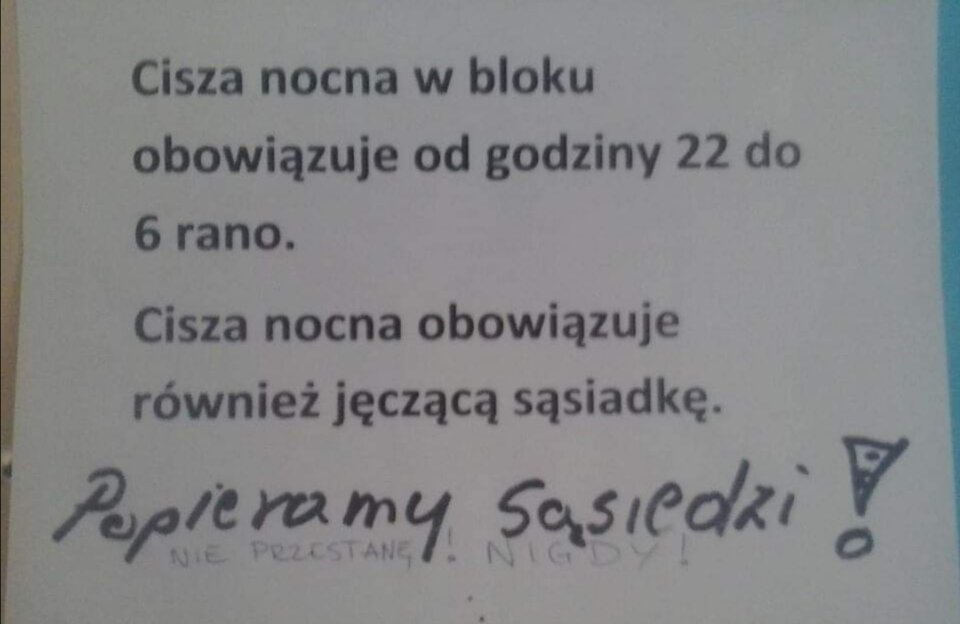 Cisza nocna w bloku
obowiązuje od godziny 22 do
6 rano.
Cisza nocna obowiązuje
również jęczącą sąsiadkę.
Popieramy sąsiedzi!
NIE PRZESTANĘ! NIGDY!